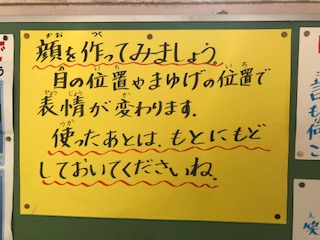 顔を作ってみましょう。
目の位置やまゆげの位置で
表情が変わります.
使ったあとは、もとにもど
しておいてくださいね.